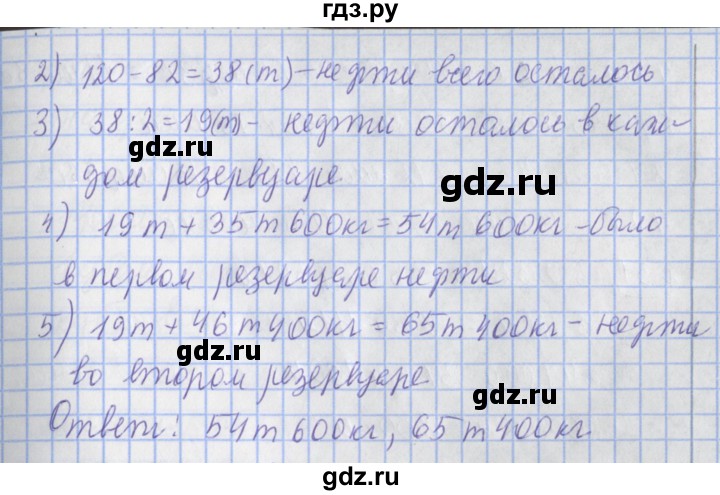 гдз.ру
2) 120-82=38(т)-нефти всего осталось
3) 38:2=19(т)- нефти осталось в каж-
gdz.ru
gdz.ru
дом резервуаре
4) 19т+35т600кг=54т600кг-было
в первом резервуаре нефти
5) 19т+46т400кг=65т400кг-нефти
gdz.ru
во втором резервуаре
gdz.ru
Ответ: 54т600кг, 65т400кг.
gdz.ru